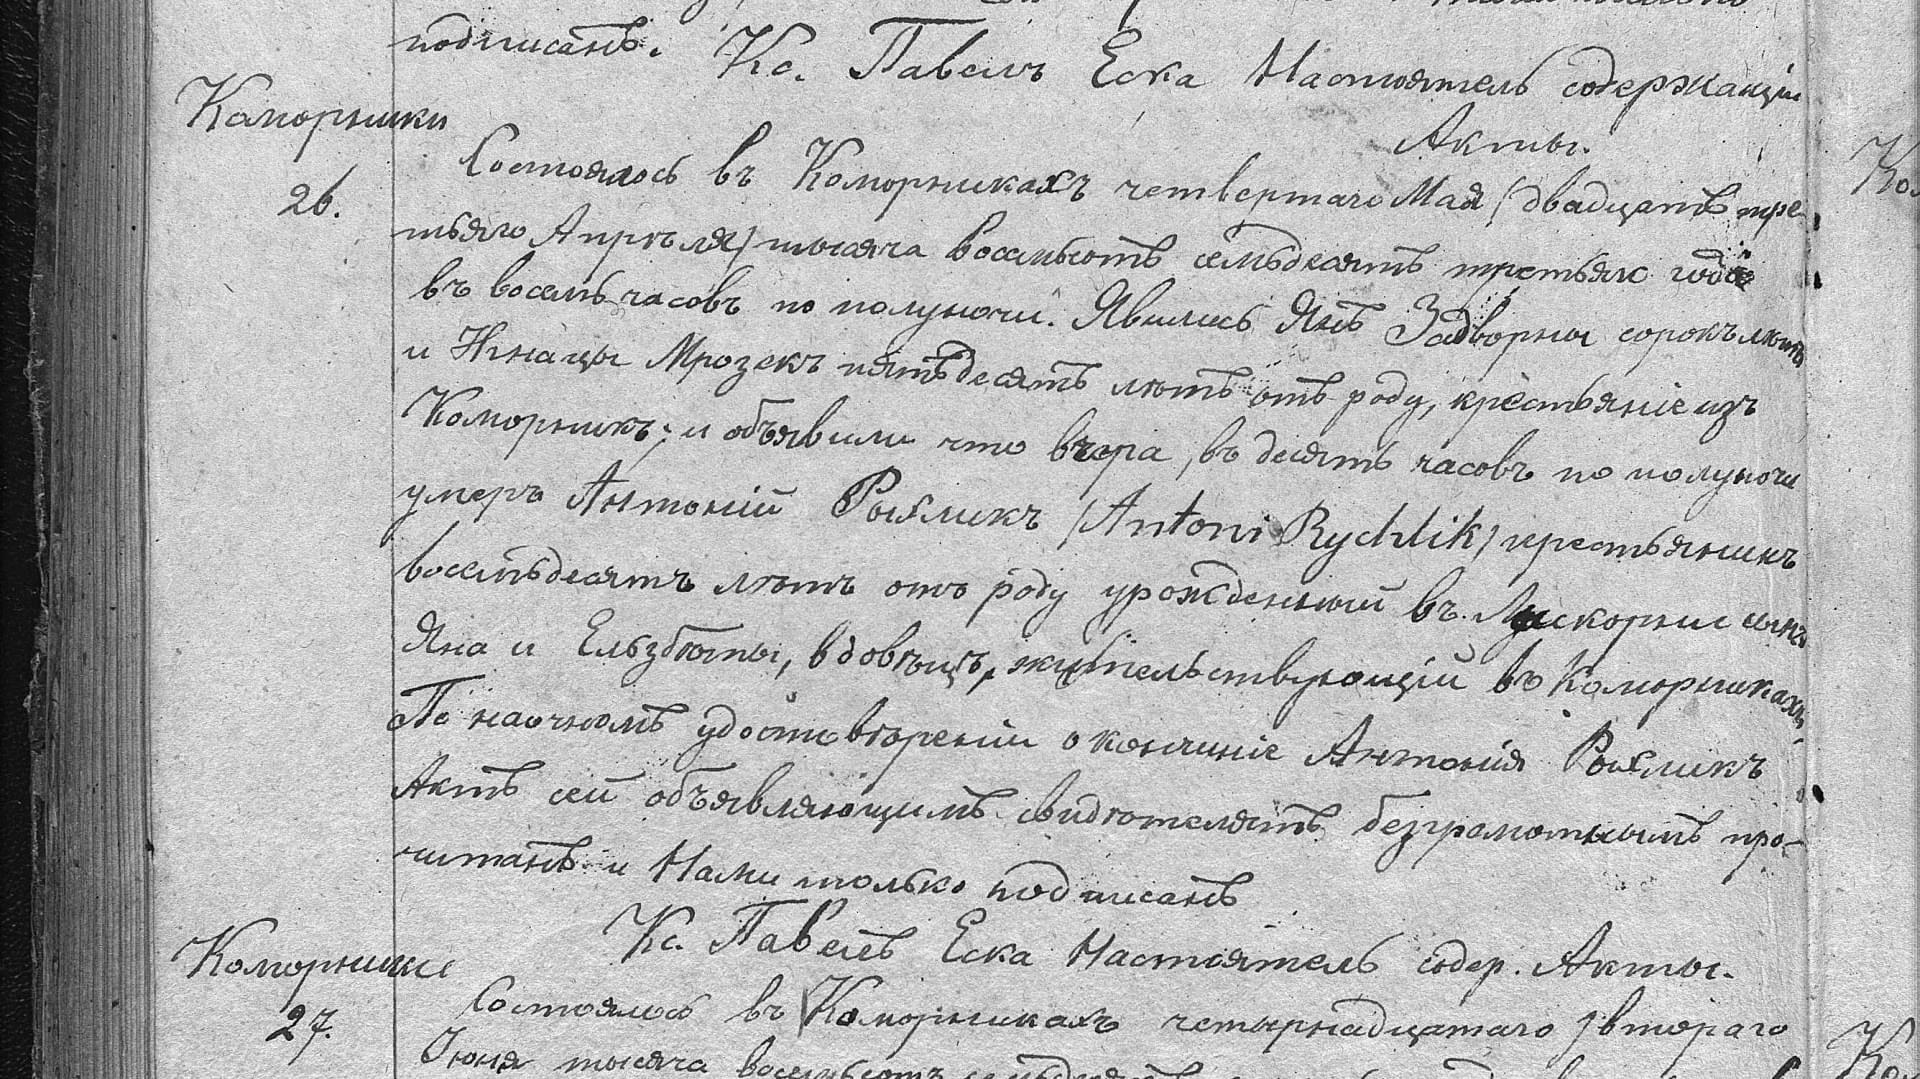 подписанъ. Кс. Павелъ Еска Настоятель содержащій
Акты.
Коморники
26.
Состоялось въ Коморникахъ четвертаго Мая (двадцать тре-
тьяго Апрѣля) тысяча восемьсотъ семьдесятъ третьяго года
въ восемь часовъ по полуночи. Явились Янъ Задворны сорокъ лѣтъ
и Игнацы Мрозекъ пятьдесятъ лѣтъ отъ роду, крестьяніе изъ
Коморникъ; и объявили что вчера, въ десять часовъ по полуночи
умеръ Антоній Рыхликъ (Antoni Rychlik) крестьянинъ
восемьдесятъ лѣтъ отъ роду урожденный въ сынъ
Яна и Ельзбѣты, вдовѣцъ, жительствующій въ Коморникахъ.
По наочномъ удостовѣреніи о кончинѣ Антонія Рыхликъ
Актъ сей объявляющимъ свидѣтелямъ безграмотнымъ про-
читанъ и Нами только подписанъ
Кс. Павелъ Еска Настоятель содер. Акты.
Коморники
27.
Состоялось въ Коморникахъ четырнадцатаго /втораго
Іюня тысяча восемьсотъ